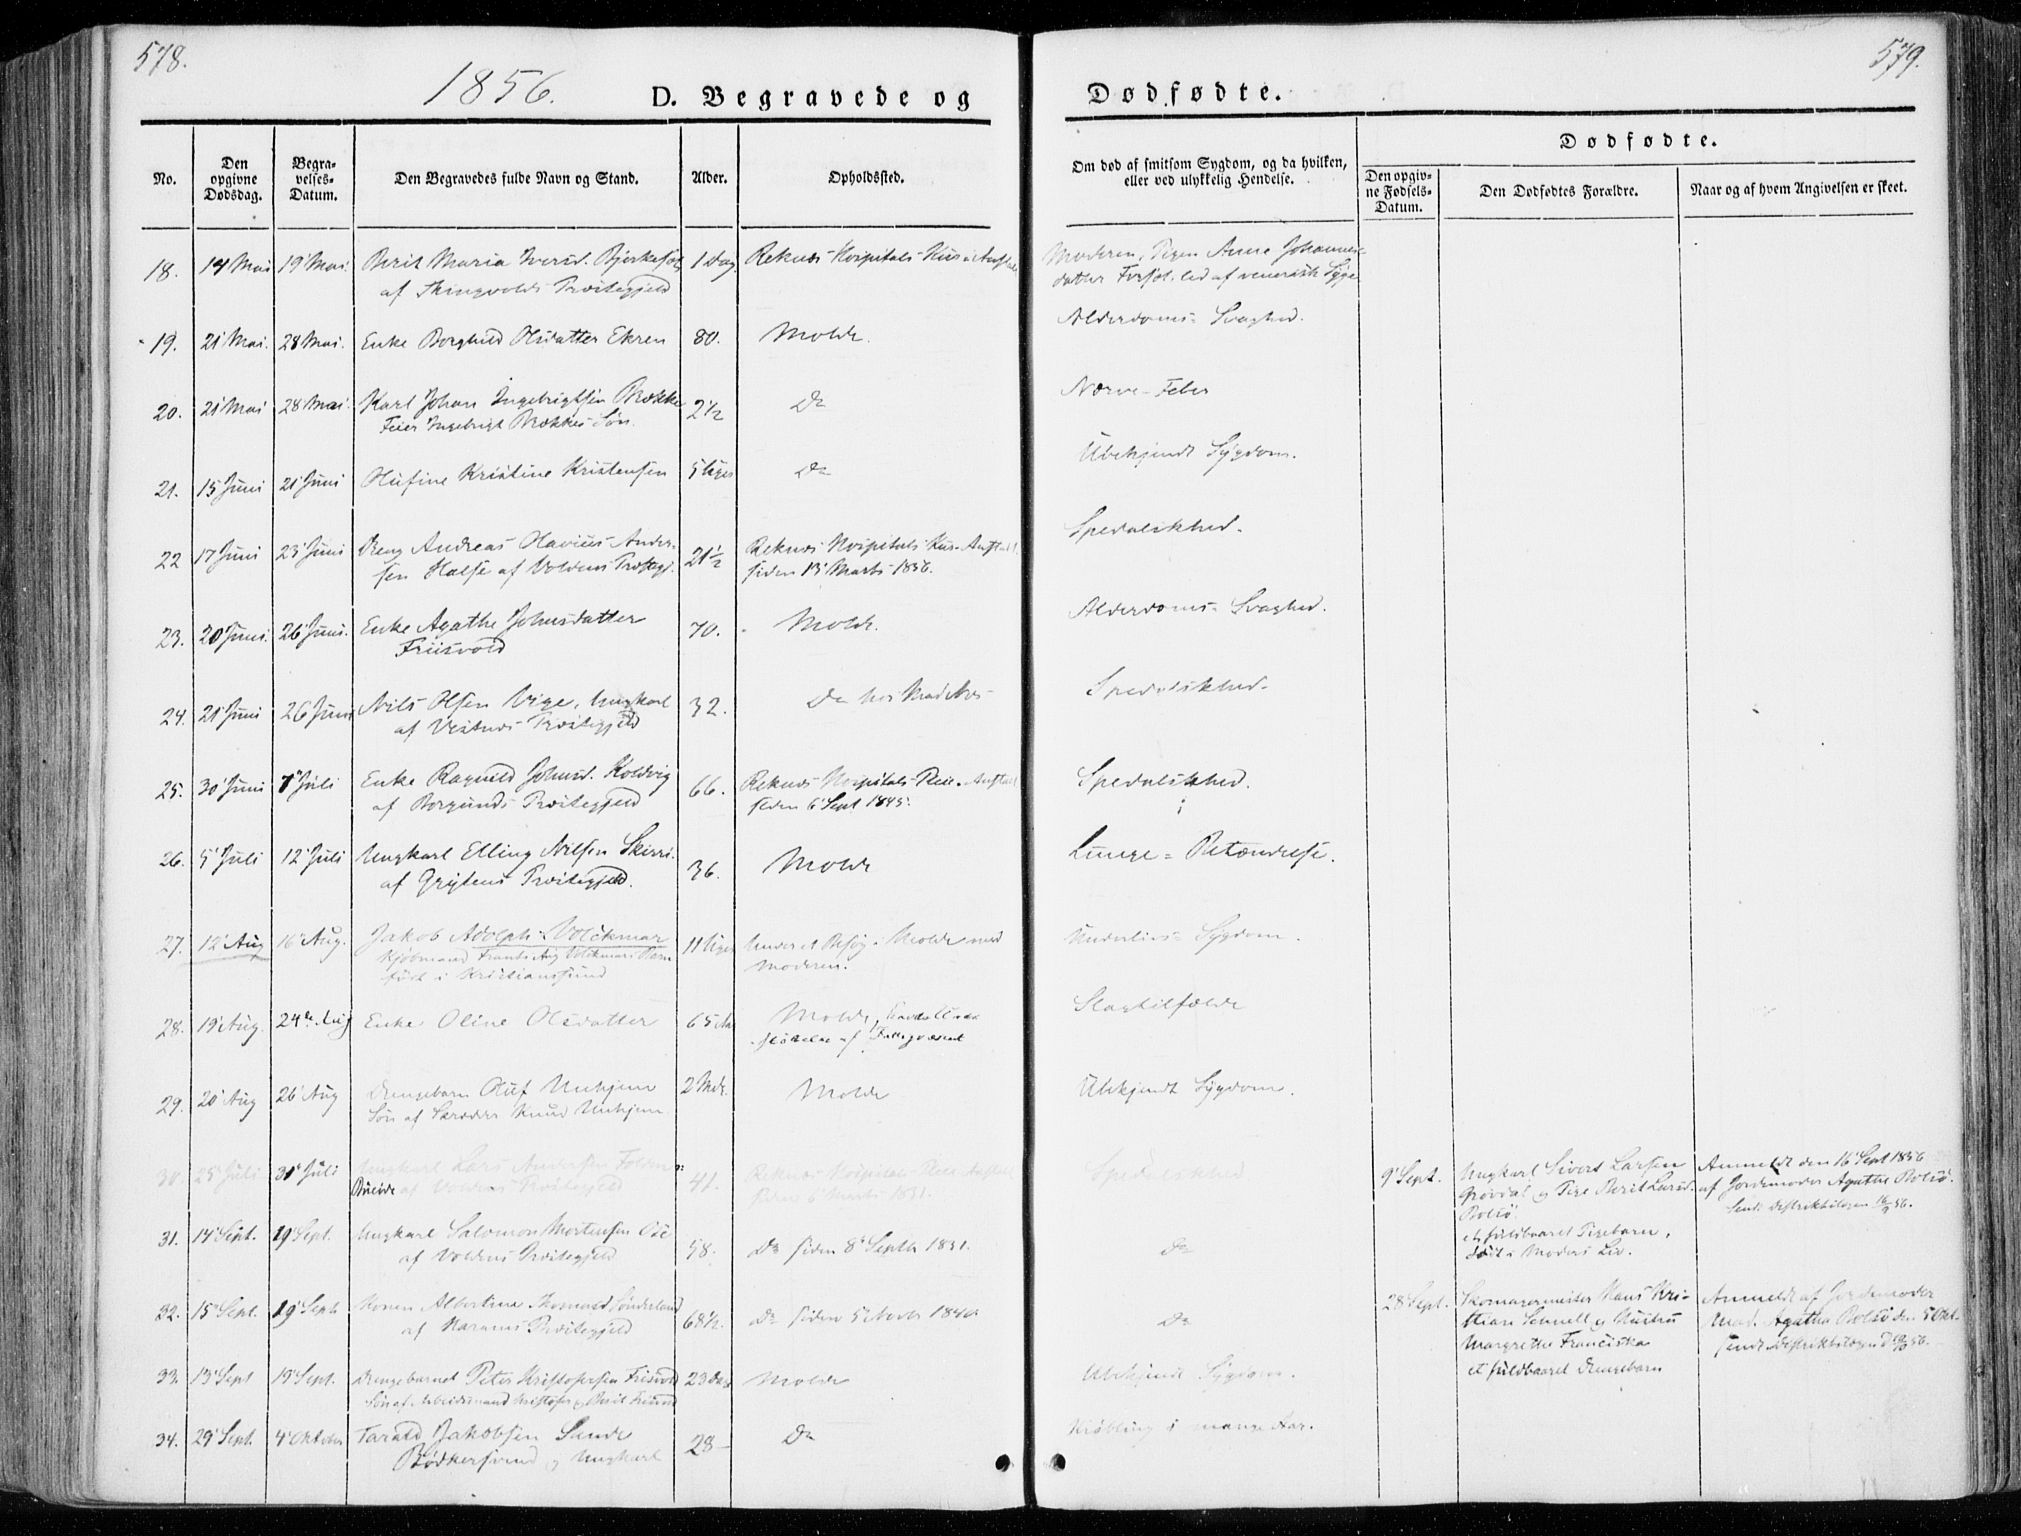 578.
579.
1856.
D. Begravede og
Dødfødte.
No.
Den opgivne Dødsdag.
Begravelses-Datum.
Den Begravedes fulde Navn og Stand.
Alder.
Opholdssted.
Om død af smitsom Sygdom, og da hvilken, eller ved ulykkelig Hendelse.
Dødfødte.
Den opgivne Fødsels-Datum.
Den Dødfødtes Forældre.
Naar og af hvem Angivelsen er skeet.
18. 14 Mai 19 Mai. Berit Maria Iversd. 1 Dag Reknes Hospitals Kur-Anstalt Moderen, Pigen Anne Johannes
af Thingvolds Præstegjeld datter af venerisk Syge
19. 21 Mai. 28 Mai. Enke Borghild Olsdatter Ekren 80. Molde. Alderdoms-Svaghed.
20. 21 Mai 28 Mai. Karl Johan Ingebrigtsen Brække 2½ Do Nerve-Feber
Feier Ingebrigt Brækkes Søn.
21. 15 Juni 21 Juni Olufine Kristine Kristensen 5 Uger Do Ubekjendt Sygdom.
22 17 Juni 23 Juni Dreng Andreas Olavius Ander- 21½ Reknes Hospitals Kur-Anstalt Spedalskhed.
sen Halse af Voldens Præstegj. siden 13 Marts 1856.
23. 20 Juni. 26 Juni. Enke Agathe Johnsdatter 70. Molde. Alderdoms-Svaghed.
Friisvold
24. 21 Juni 26 Juni Nils Olsen Vige, Ungkarl 32. Do hos Spedalskhed.
af Vestnes Præstegjeld
25. 30 Juni 7 Juli Enke Ragnild Johnsd. Koldvig 66. Reknes Hospitals Pleie-Anstalt Spedalskhed.
af Borgunds Præstegjeld siden 6 Sept 1845.
26. 5 Juli 12 Juli Ungkarl Elling Nilsen Skirri. 36. Molde Lunge-Betændelse.
af Grytens Præstegjeld.
27. 12 Aug 16 Aug. Jakob Adolph Volckmar 11 Uger Under et Besøg i Molde med Underlivs-Sygdom.
Kjøbmand Frants Aug Volckmars Barn Moderen.
født i Kristianssund
28. 19 Aug. 24de Aug Enke Oline Olsdatter 65 Molde, Slagtilfælde
af Fattigvæsenet
29. 20 Aug 26 Aug Drengebarn Oluf Unhjem 2 Mdr. Molde Ubekjendt Sygdom.
Søn af Skræder Knud Unhjem.
30. 25 Juli 31 Juli Ungkarl Lars Andersen Folden 41. Reknes Hospitals Pleie Anstalt Spedalskhed
af Voldens Præstegjeld siden 6 Marts 1851.
9 Sept. Ungkarl Sivert Larsen
Grovdal og Pige Berit Larsd.
Bolsø.
et fuldbaaret Pigebarn,
død i Moders Liv.
Anmeldt den 16 Sept 1856
af Jordemoder Agathe Bolsø.
Sendt Distriktslægen
31. 14 Sept. 19 Sept. Ungkarl Salomon Mortensen Ose 58. Do siden 8 Septbr 1851. Do
af Voldens Præstegjeld
32. 15 Sept. 19 Sept Konen Albertine Sønderland 68½. Do siden 1840 Do
af Harams Præstegjeld
28 Sept. Skomagermester Hans Kri-
stian Schnell og Hustru
Margrethe Franciska
et fuldbaaret Drengebarn
Anmeldt af Jordemoder
Mad. Agatha Bolsø den 5 Okt.
sendt Distriktslægen
33. 13 Sept 19 Sept. Drengebarnet Peter Kristofersen Friisvold 23 Dage Molde Ubekjendt Sygdom.
Søn af Arbeidsmand Kristofer og Berit Friisvold
34. 29 Sept. 4 Oktober Farald Jakobsen Sande 28 Do Krøbling i mange Aar.
Bødkersvend og Ungkarl